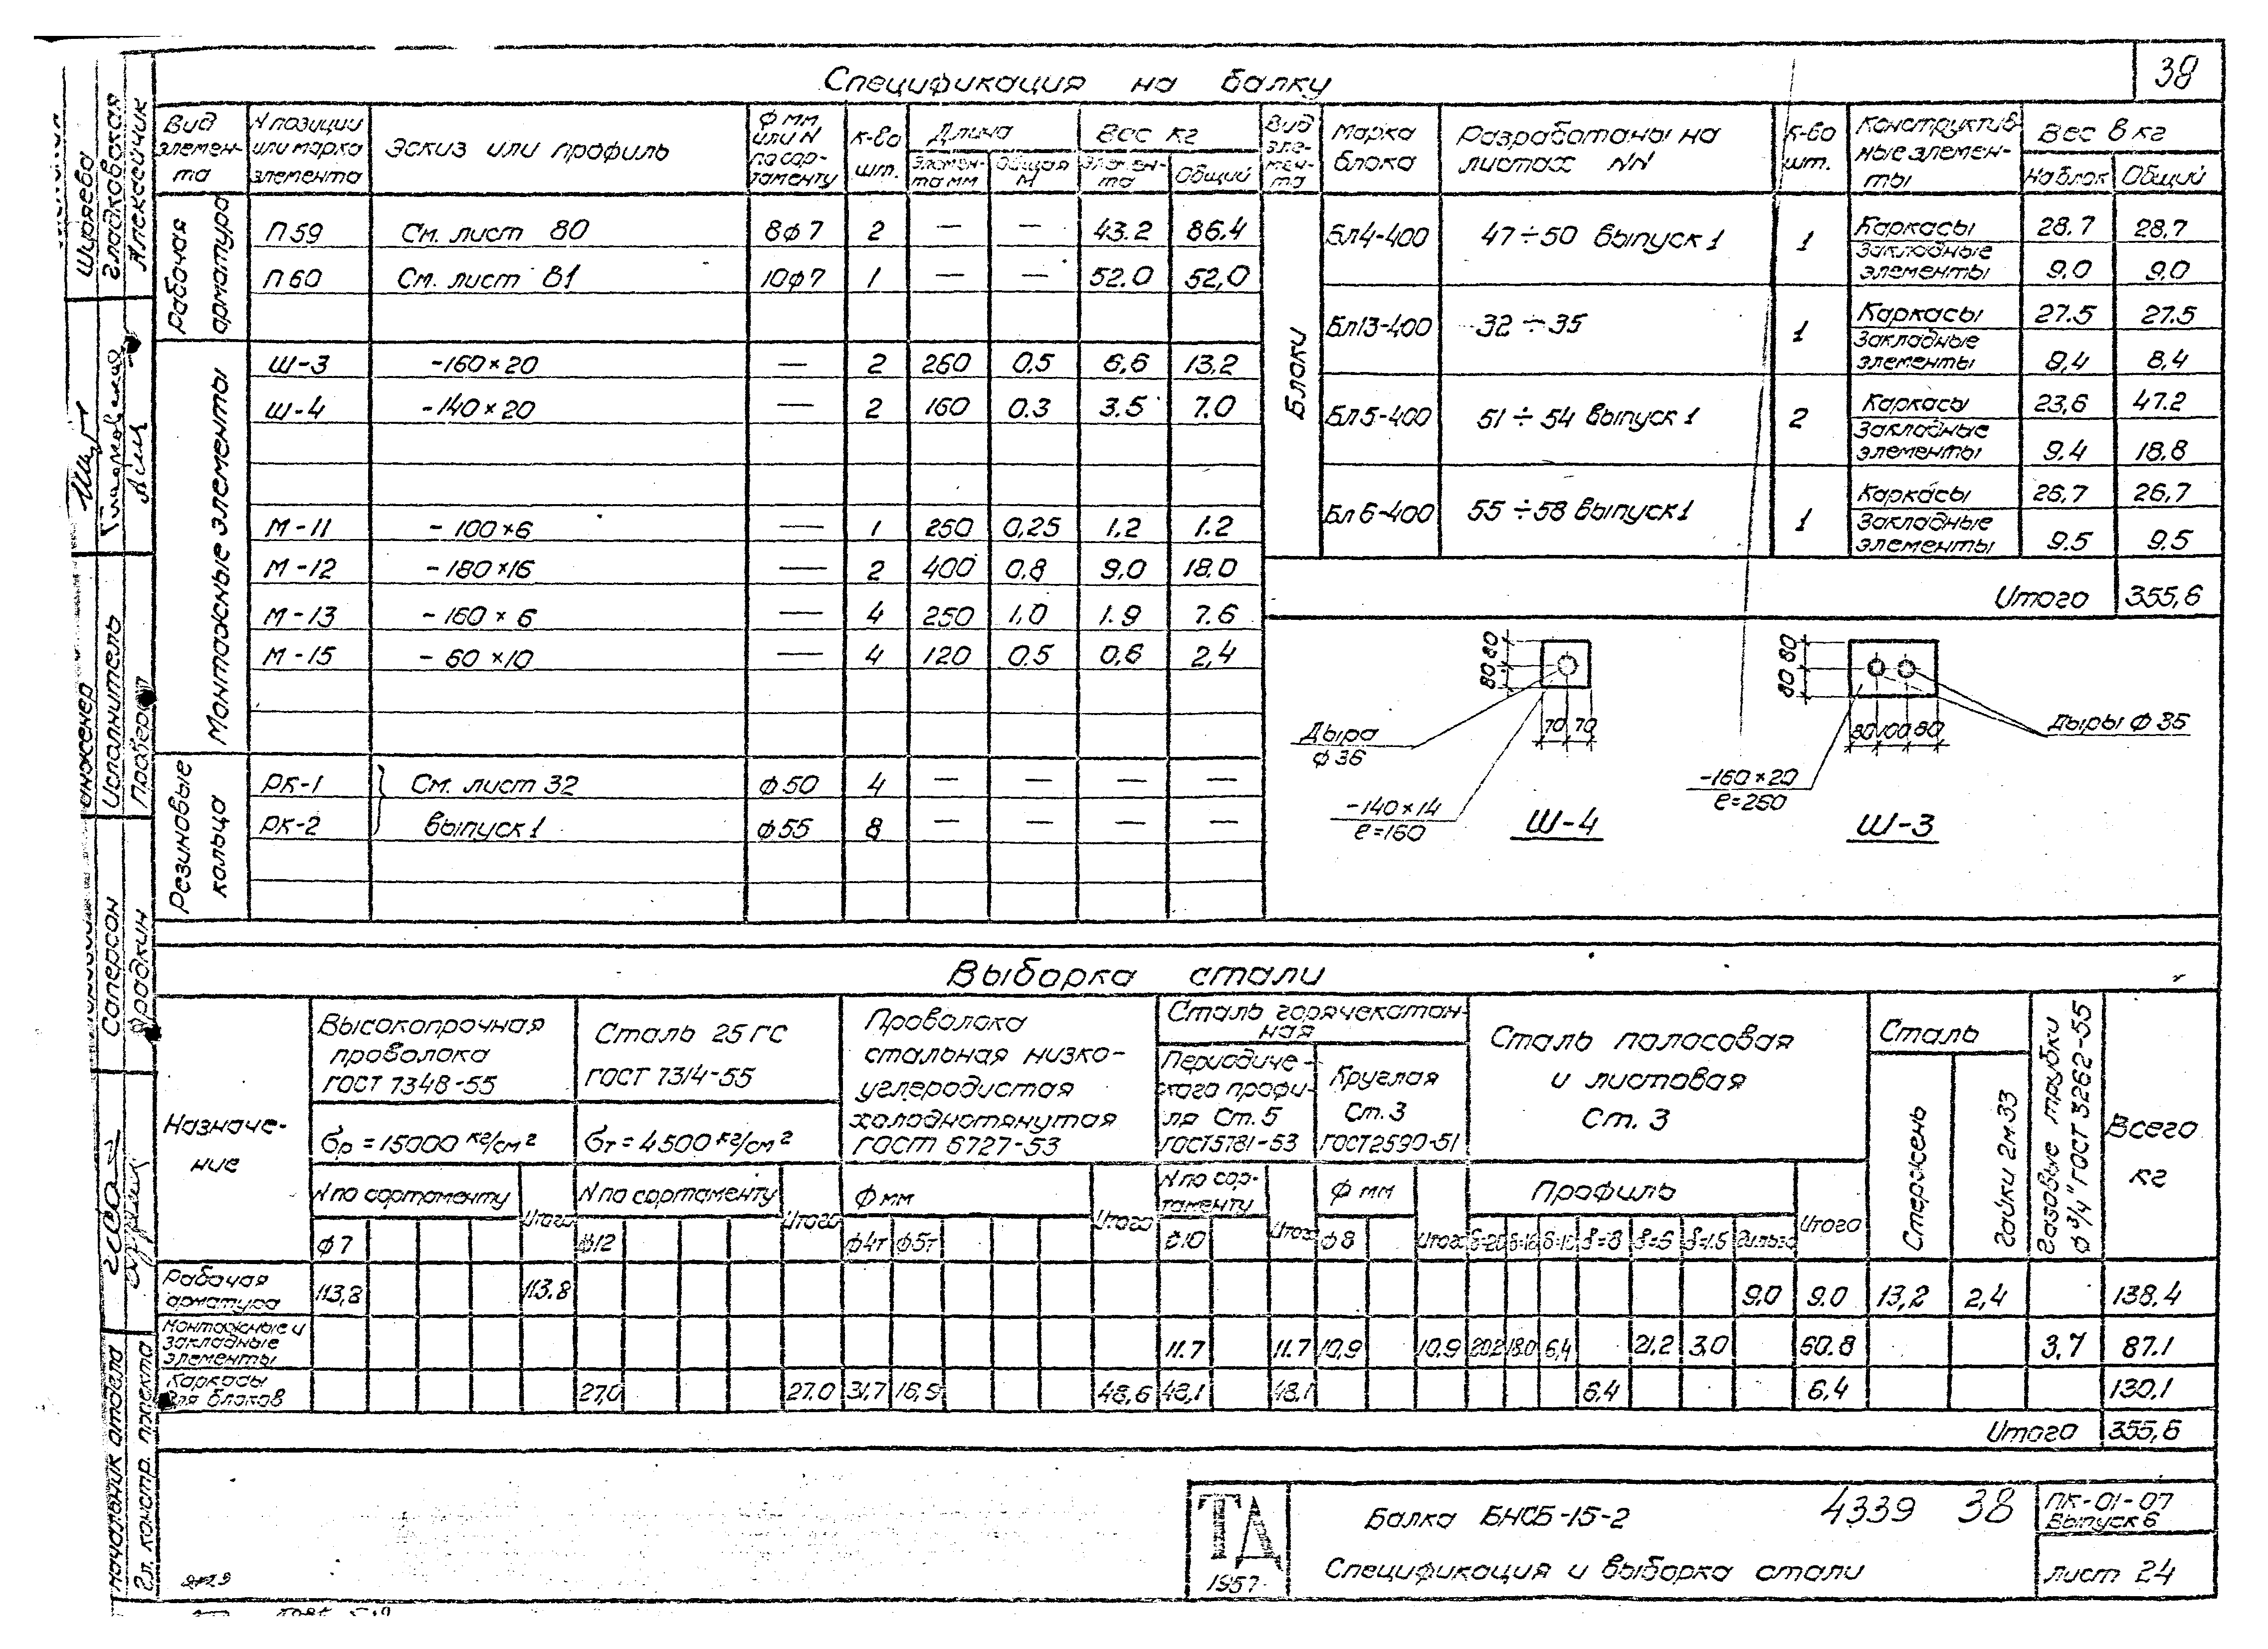 38
Спецификация на балку
Вид элемен-та | N позиции или марка элемента | Эскиз или профиль | Ф мм или N по сор-таменту | К-во шт. | Длина | Вес кг
Элемен-та мм | Общая м | Элемен-та | Общий
Рабочая арматура
П 59 | См. лист 80 | 8ф7 | 2 | — | — | 43.2 | 86,4
П 60 | См. лист 81 | 10ф7 | 1 | — | — | 52.0 | 52,0
Монтажные элементы
Ш-3 | -160×20 | — | 2 | 260 | 0.5 | 6,6 | 13,2
Ш-4 | -140×20 | — | 2 | 160 | 0.3 | 3.5 | 7.0
М-11 | - 100×6 | — | 1 | 250 | 0,25 | 1,2 | 1.2
М-12 | -180×16 | — | 2 | 400 | 0.8 | 9.0 | 18.0
М-13 | - 160 × 6 | — | 4 | 250 | 1,0 | 1.9 | 7.6
М-15 | - 60 ×10 | — | 4 | 120 | 0.5 | 0,6 | 2,4
Резиновые кольца
РК-1 | См. лист 32 | ф50 | 4 | — | — | — | —
РК-2 | выпуск 1 | ф55 | 8 | — | — | — | —
Вид эле-мен-та | Марка блока | Разработаны на листах NN | К-во шт. | Конструктив-ные элемен-ты | Вес в кг
На блок | Общий
Блоки
Бл4-400 | 47÷50 выпуск 1 | 1 | Каркасы | 28.7 | 28,7
Закладные элементы | 9.0 | 9.0
Бл13-400 | 32 ÷ 35 | 1 | Каркасы | 27.5 | 27.5
Закладные элементы | 9,4 | 8,4
Бл5-400 | 51 ÷ 54 выпуск 1 | 2 | Каркасы | 23,6 | 47.2
Закладные элементы | 9.4 | 18.8
Бл 6-400 | 55 ÷58 выпуск 1 | 1 | Каркасы | 26,7 | 26,7
Закладные элементы | 9.5 | 9.5
Итого 355,6
80 80
70 70
Дыра
ф 36
-140×14
ℓ=160
Ш-4
80 80
80 100 80
Дыры ф 36
-160×20
ℓ=260
Ш-3
Выборка стали
Назначе-ние
Высокопрочная проволока ГОСТ 7348-55
бр = 15000 кг/см²
N по сортаменту
ф7 | Итого
Сталь 25ГС ГОСТ 7314-55
бт = 4500 кг/см²
N по сортаменту
ф12 | Итого
Проволока стальная низко-углеродистая холоднотянутая ГОСТ 6727-53
Ф мм
ф4т | ф5т | Итого
Сталь горячекатан-ная
Периодиче-ского профи-ля Ст. 5 ГОСТ5781-53
N по сор-таменту
ф10 | Итого
Круглая Ст. 3 ГОСТ2590-51
Ф мм
ф8 | Итого
Сталь полосовая и листовая Ст. 3
Профиль
δ=20 | δ=16 | δ=10 | δ=8 | δ=6 | δ=1.5 | Гильза | Итого
Сталь
Стержень | Гайки 2м33
Газовые трубки ф 3/4" ГОСТ 3262-55
Всего кг
Рабочая арматура | 113,8 | 113.8 | 9.0 | 9.0 | 13,2 | 2,4 | 138.4
Монтажные и закладные элементы | 11.7 | 11.7 | 10,9 | 10.9 | 20.2 | 18.0 | 6,4 | 21,2 | 3,0 | 60.8 | 3,7 | 87.1
Каркасы для блоков | 27,0 | 27.0 | 31,7 | 16,9 | 48,6 | 48,1 | 48.1 | 6,4 | 6,4 | 130.1
Итого 355,6
ТД
1957
Балка БНСБ-15-2
4339 38
Спецификация и выборка стали
ПК-01-07
Выпуск 6
лист 24
Ширяева
Гладковская
Алексейчик
инженер
Исполнитель
Провер
Саперсон
Бродкин
Начальник отдела
Гл. констр. проекта